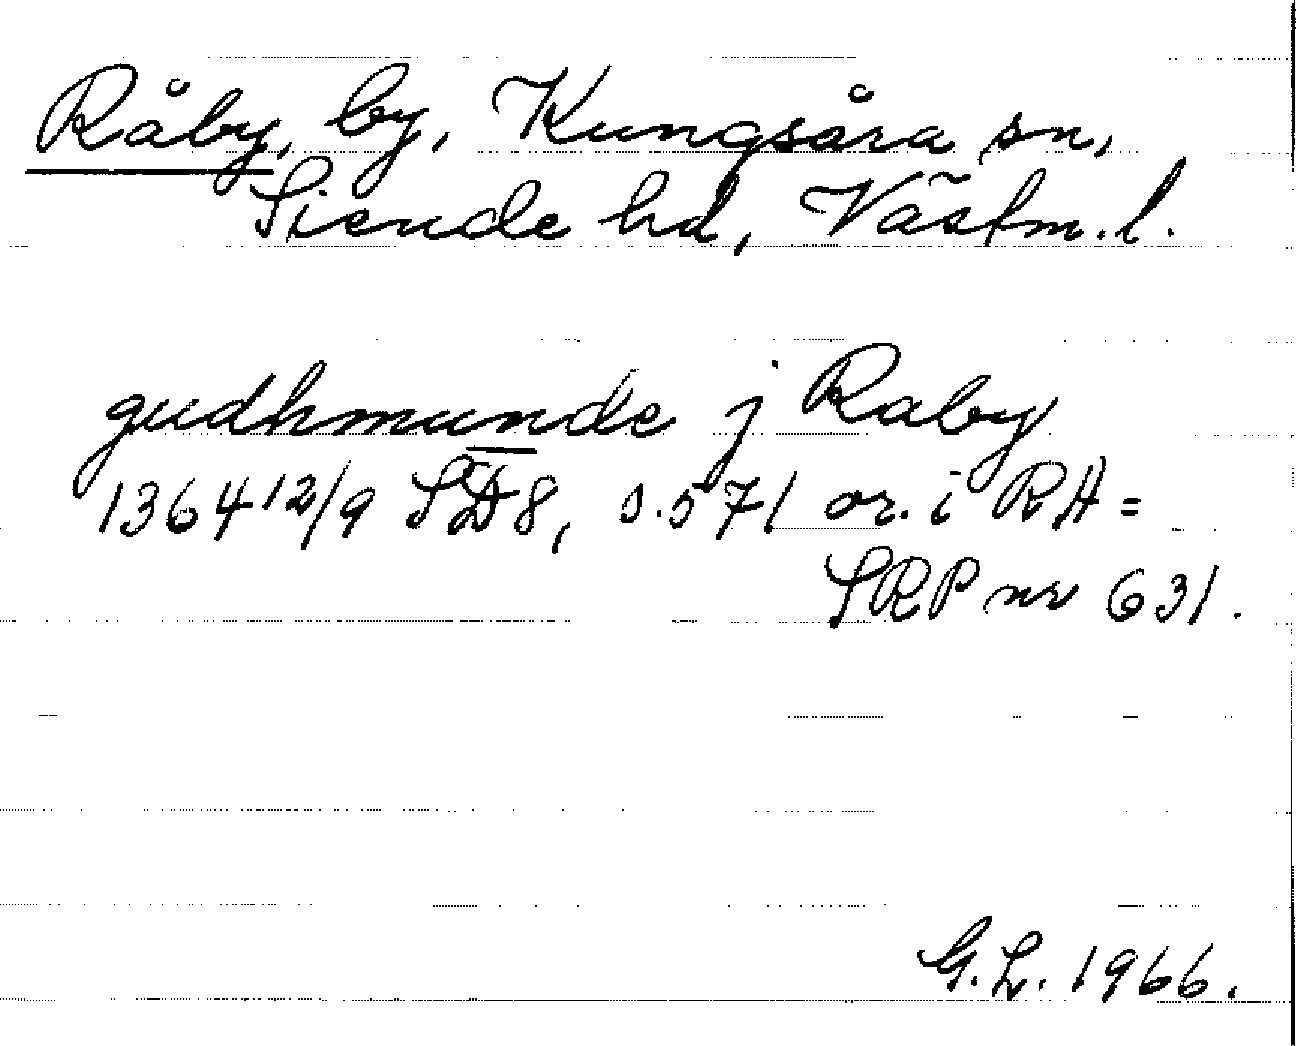 Råby, by, Kungsåra sn,
Siende hd, Västm. l.
gudhmunde j Raby
1364 12/9 SD 8, s. 571 or. i RA =
SRP nr 631.
G. L. 1966.